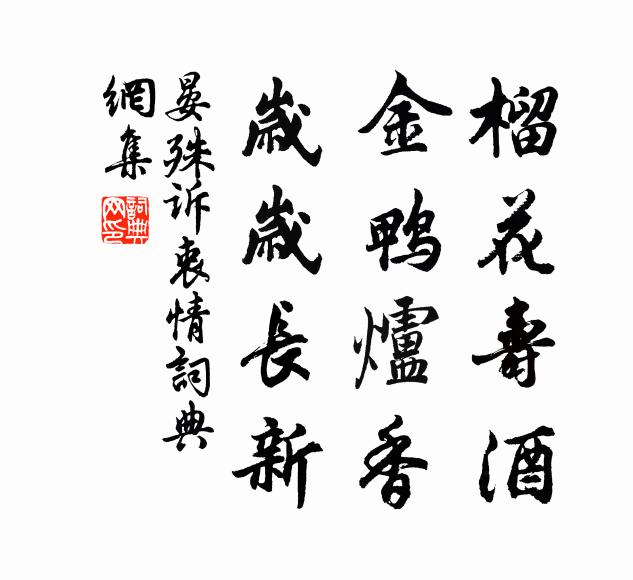 榴花壽酒
金鴨爐香
歲歲長新
晏殊诉衷情詞典
網集
詞典網印